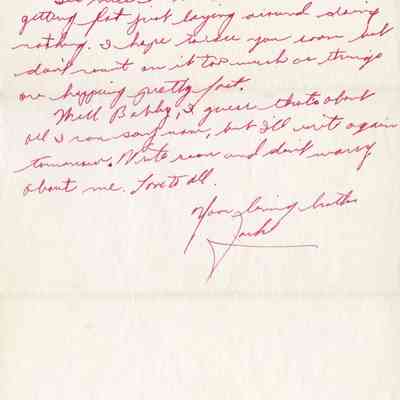 getting fat just laying around doing
nothing. I hope to see you soon but
don't count on it too much as things
are happing pretty fast.
Well Bobby, I guess that's about
all I can say now, but I'll write again
tommorow. Write soon and don't worry
about me. Love to all.
Your loving brother